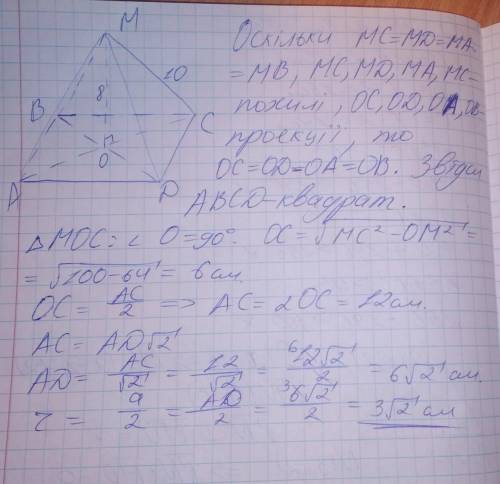 M
Оскільки MC=MD=MA=
=MB, MC, MD, MA, MC-
похилі, OC, OD, OA, OB-
проекції, то
OC=OD=OA=OB. Звідси
ABCD-квадрат.
10
8
B
C
O
A
D
△MOC: ∠O=90°. OC=√MC²-OM²=
=√100-64=6см.
OC=AC/2 => AC=2OC=12см.
AC=AD√2
AD=AC/√2=12/√2=12√2/2=6√2 см.
r=a/2=AD/2=6√2/2=3√2 см